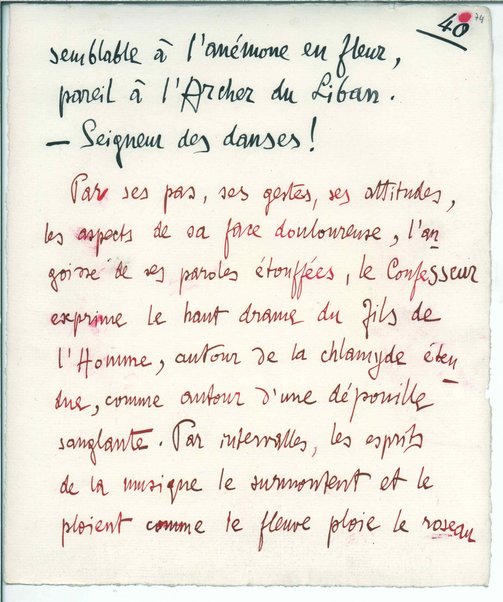 40 74
semblable à l'anémone en fleur,
pareil à l'Archer du Liban.
— Seigneur des danses!
Par ses pas, ses gestes, ses attitudes,
les aspects de sa face douloureuse, l'an-
goisse de ses paroles étouffées, le Confesseur
exprime le haut drame du Fils de
l'Homme, autour de la chlamyde éten-
due, comme autour d'une dépouille
sanglante. Par intervalles, les esprits
de la musique le surmontent et le
ploient comme le fleuve ploie le roseau